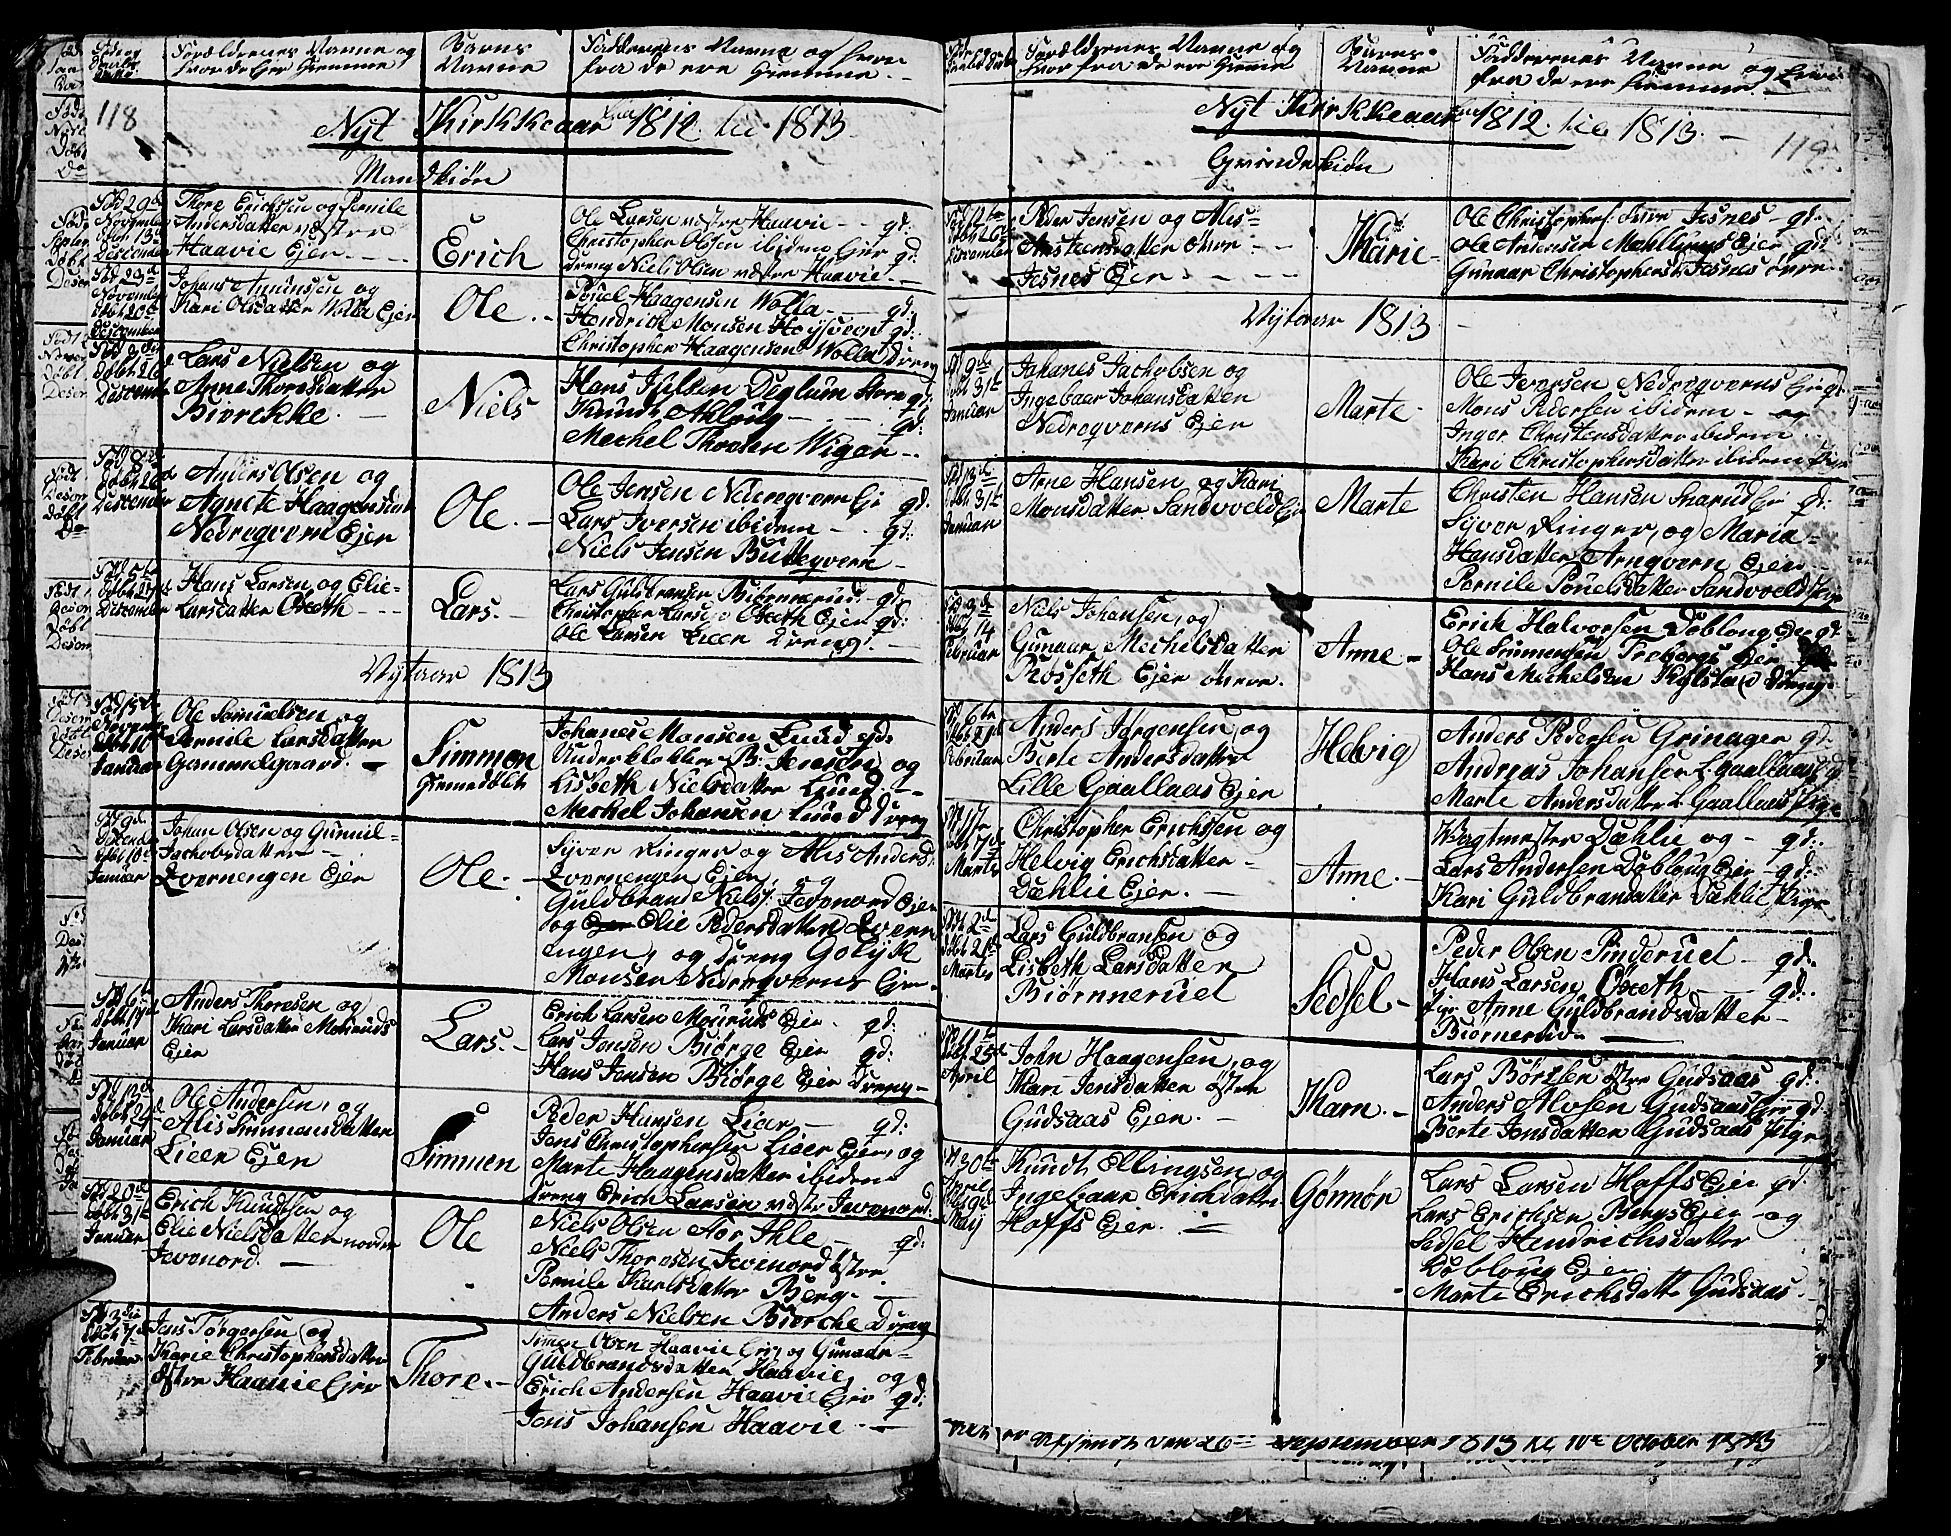 Forældrenes Navne og
hvor de Ejer Hiemme
Barns
Navne
Faddernes Navne og hvor
fra de ere Hiemme
118
Nyt Kirkkeaar fra 1812 til 1813
Mandkiøn
Fød 29de
November
døbt 13de
Descember
Thore Erichsen og Pernile
Andersdatter vestre
Haavie Ejer
Erich
Ole Larsen vestre Haavie gd:
Christopher Olsen ibidem Ejer gd:
dreng Niels Olsen vestre Haavie
November
døbt 20de
Descember
Johans Amundsen og
Kari Olsdatter Wolla Ejer
Ole
Pouel Haagensen Wolla gd:
Hendrich Monsen Høysveen gd:
Christopher Haagensen Wolla dreng
døbt 26de
Descember
Lars Nielsen og
Anne Thoresdatter
Bierckke
Niels
Hans Julsen Deglum Store gd:
Knudt Ahlong gd:
Mechel Thorsen Wigen
døbt 26de
Descember
Anders Olsen og
Agnete Haagensdat
Nedreqvern Ejer
Ole
Ole Jensen Nedreqvern Ejer gd:
Lars Iversen ibidem gd:
Niels Jensen Butteqvern
Descember
Hans Larsen og Elie
Larsdatter Obeth
Lars
Lars Guldbransen Biørnerud gd:
Christopher Larsen Obeth Ejer gd:
Ole Larsen Lieer dreng
Nytaar 1813
Fød 15de
November
døbt 10de
Januar
Ole Samuelsen og
Pernile Larsdatter
Gammelgaard
Simmen
Hiemedøbt
Johanes Monsen Lund gd:
Underklokker B: Jensen og
Lisbeth Nielsdatter Lund
Mechel Johansen Lund dreng
døbt 10de
Januar
Johan Olsen og Gunnil
Jachobsdatter
Qvernengen Ejer
Ole
Syver Ringer og Alis Anders
Qvernengen Ejer, og
Guldbrand Niels: Jevnord Ejer
og Ejer Elie Pedersdatter Qvern
engen, og dreng Golik
Monsen Nedreqverns Ejer
Fød 6te
døbt 17de
Januar
Anders Thoresen og
Kari Larsdatter Mosruds
Ejer
Lars
Erich Larsen Mosruds Ejer gd:
Lars Jensen Biørge Ejer gd:
Hans Jensen Biørge Ejer dreng
Fød 13de
døbt 24de
Januar
Ole Andersen, og
Alis Simmensdatter
Lieer Ejer
Simmen
Peder Hansen Lieer gd:
Jens Christophersen Lieer Ejer, og
Marte Haagensdatter ibidem
dreng Erich Larsen vestre Jevnord
Fød 20de
døbt 31te
Januar
Erich Knudsen og
Elie Nielsdatter nordre
Jevnord
Ole
Niels Olsen Stor Ihle gd:
Niels Thoresen Jevnord østre
Pernile Karlsdatter Berg
Anders Nielsen Biercke dreng
Fød 3die
døbt 7de
Februar
Jens Torgersen og
Karie Christophersdatter
østre Haavie Ejer
Thore
Simmen Olsen Haavie Ejer, og Gunnar
Guldbrandsdatter Haavie, og
Erich Andersen Haavie Ejer gd:
Jens Johansen Haavie
Forældrenes Navne og
hvor fra de ere Hiemme
Barnes
Navne
Faddernes Navne og hvor
fra de ere hiemme
Nyt Kirkkeaar fra 1812 til 1813
119
Qvindekiøn
døbt 26de
Descember
Peder Jensen og Alis
Amsteensdatter øvre
Jesnes Ejer
Karie
Ole Christophers: Jesnes gd:
Ole Andersen Mæhllums Ejer gd:
Gunnar Christophersd: Jesnes øvre
Nytaar 1813
Fød 9de
døbt 31te
Januar
Johanes Jachobsen og
Ingebaar Johansdatter
Nedreqverns Ejer
Marte
Ole Iversen Nedreqverns Ejer gd:
Mons Pedersen ibidem og
Inger Christensdatter ibidem
Kari Christophersdatter ibidem Pige
Fød 13de
døbt 31te
Januar
Arne Hansen og Kari
Monsdatter Sandvold Ejer
Marte
Christen Hansen Skarud Ejer gd:
Syver Ringer, og Maria
Hansdatter Arnqvern Ejer
Pernile Pouelsdatter Sandvold Pige
Fød 3de
døbt 14
Februar
Niels Johansen, og
Gunnar Mechelsdatter
Røsseth Ejer øvre
Anne
Erich Halvorsen Dobloug Ejer gd:
Ole Simmensen Frøbergs Ejer
Hans Michelsen Kylstad dreng
Fød 6te
døbt 21de
Februar
Anders Jørgensen, og
Berte Andersdatter
Lille Gaallaas Ejer
Helvig
Anders Pedersen Grinager gd:
Andreas Johansen L: Gaallaas gd:
Marte Andersdatter L Gaallaas Pige
døbt 7de
Marts
Christopher Erichsen og
Helvig Erichsdatter
Dæhlie Ejer
Anne
Wagtmester Dæhlie og gd:
Lars Andersen Dobloug Ejer gd:
Kari Guldbrandsdatter Dæhlie Pige
Fød 2de
døbt 21de
Marts
Lars Guldbransen og
Lisbeth Larsdatter
Biørnnerued
Sedsel
Peder Olsen Pinderued gd:
Hans Larsen Obeth gd:
Pige Anne Guldbrandsdatter
Biørnerud
døbt 25de
April
John Haagensen, og
Kari Jensdatter østre
Gudsaas Ejer
Karn
Lars Børresen østre Gudsaas gd:
Anders Alvsen Gudsaas Ejer gd:
Berte Jensdatter Gudsaas Pige
Fød 30te
April
døbt 9de
Maij
Knudt Ellingsen og
Ingebaar Erichdatter
Hoffs Ejer
Gønnør
Lars Larsen Hoffs Ejer gd:
Lars Erichsen Bergs Ejer og
Sedsel Hendrichsdatter
Dobloug Ejer
Marte Erichsdatter Gudsaas
Afsendt den 26de September 1813 til 10de October 1813